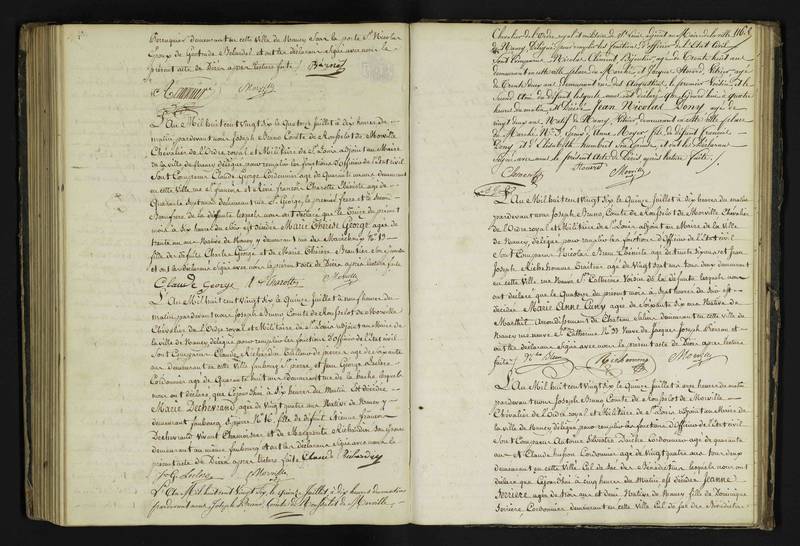 Perruquier demeurant en cette Ville de Nancy près la porte St Nicolas
Epoux de Gertrude Blandel et ont les déclarans signé avec nous le
présent acte de Décès après lecture faite.
Morville
L'An Mil huit cent Vingt Six le Quatorze Juillet à dix heures du
matin pardevant nous Joseph Bruno Comte de Rousselot de Morville
Chevalier de l'Ordre royal et Militaire de St Louis adjoint au Maire
de la ville de Nancy délégué pour remplir les fonctions d'Officier de l'état civil
Sont Comparus Claude George Cordonnier agé de Quarante un ans demeurant
en cette Ville rue St francois et Réné francois Charotte agé de
Quarante Sept ans demeurant rue St George, le premier frère et le Second
Beaufrère de la défunte lesquels nous ont déclaré que le treize du présent
mois à six heures du soir est décédée Marie Thérèse George agée de
trente un ans Native de Nancy y demeurant rue des Maréchaux No 13
fille de défunts Charles George et de Marie Thérèse
et ont les déclarans signé avec nous le présent acte de Décès après lecture faite
Claude George Charotte Morville
L'An Mil huit cent Vingt Six le Quinze Juillet à neuf heures du
matin pardevant nous Joseph Bruno Comte de Rousselot de Morville
Chevalier de l'Ordre royal et Militaire de St Louis adjoint au Maire de
la ville de Nancy délégué pour remplir les fonctions d'Officier de l'état civil
Sont Comparus Claude Richardin tailleur de pierre agé de
ans demeurant en cette Ville faubourg St pierre, et Jean George Leclerc
Cordonnier agé de Quarante huit ans demeurant rue de la hache lesquels
nous ont déclaré que Cejourdhui à Six heures du Matin est décédée
Marie Dechevrand, agée de Vingt quatre ans Native de Nancy y
demeurant faubourg St pierre No 16, fille de défunt Etienne françois
Dechevrand Vivant Chamoiseur et de Marguerite Richardin son Epouse
demeurant au même faubourg et ont les déclarans signé avec nous le
présent acte de Décès après lecture faite Claude Richardin
J G Leclerc Morville
L'An Mil huit cent Vingt Six, le Quinze Juillet, à dix heures du matin
pardevant nous Joseph Bruno Comte de Rousselot de Morville
116
Chevalier de l'Ordre royal et militaire de St Louis adjoint au Maire de la ville
de Nancy délégué pour remplir les fonctions d'Officier de l'Etat Civil
Sont Comparus Nicolas Clément Bijoutier agé de Trente huit ans
demeurant en cette ville place du Marché et Jacques Houard
de Trente deux ans demeurant rue des Augustins, le premier Voisin et le
Second Ami du défunt lesquels nous ont déclaré que Cejourdhui à quatre
heures du matin est décédé Jean Nicolas Pony agé de
vingt deux ans Natif de Nancy demeurant en cette ville place
du Marché No 3 fils de défunt
Pony et d'Elisabeth Humbert son Epouse, et ont les déclarans
signé avec nous le présent acte de Décès après lecture faite
Clément Houard Morville
L'An Mil huit cent Vingt Six, le Quinze Juillet à dix heures du matin
pardevant nous Joseph Bruno Comte de Rousselot de Morville Chevalier
de l'Ordre royal et Militaire de St Louis adjoint au Maire de la Ville
de Nancy, délégué pour remplir les fonctions d'Officier de l'Etat civil
Sont Comparus Nicolas Blaux agé de trente Six ans et Jean
Joseph Richomme agé de Vingt Sept ans tous deux demeurant
en cette Ville, rue Neuve Ste Catherine Voisins de la défunte lesquels nous
ont déclaré que le Quatorze du présent mois à Sept heures du soir est
décédée Marie Anne Cuny agée de Soixante Six ans Native de
Marthil Arrondissement de Chateau Salins demeurant en cette ville de
Nancy rue neuve Ste Catherine No 31 Veuve de Jacques Joseph et
ont les déclarans signé avec nous le présent acte de Décès après lecture
faite Richomme Morville
L'An Mil huit cent Vingt Six le Quinze Juillet à onze heures du matin
pardevant nous Joseph Bruno Comte de Rousselot de Morville
Chevalier de l'Ordre royal et Militaire de St Louis adjoint au Maire de
la ville de Nancy délégué pour remplir les fonctions d'Officier de l'Etat civil
Sont Comparus Antoine Silvestre Cordonnier agé de quarante
ans et Claude Husson Cordonnier agé de Vingt quatre ans tous deux
demeurant en cette ville Cul de Sac des Bénédictins lesquels nous ont
déclaré que Cejourdhui à cinq heures du Matin est décédée Jeanne
Ferriere agée de trois ans et demi Native de Nancy fille de Dominique
Ferriere, Cordonnier demeurant en cette Ville Cul de Sac des Bénédictins